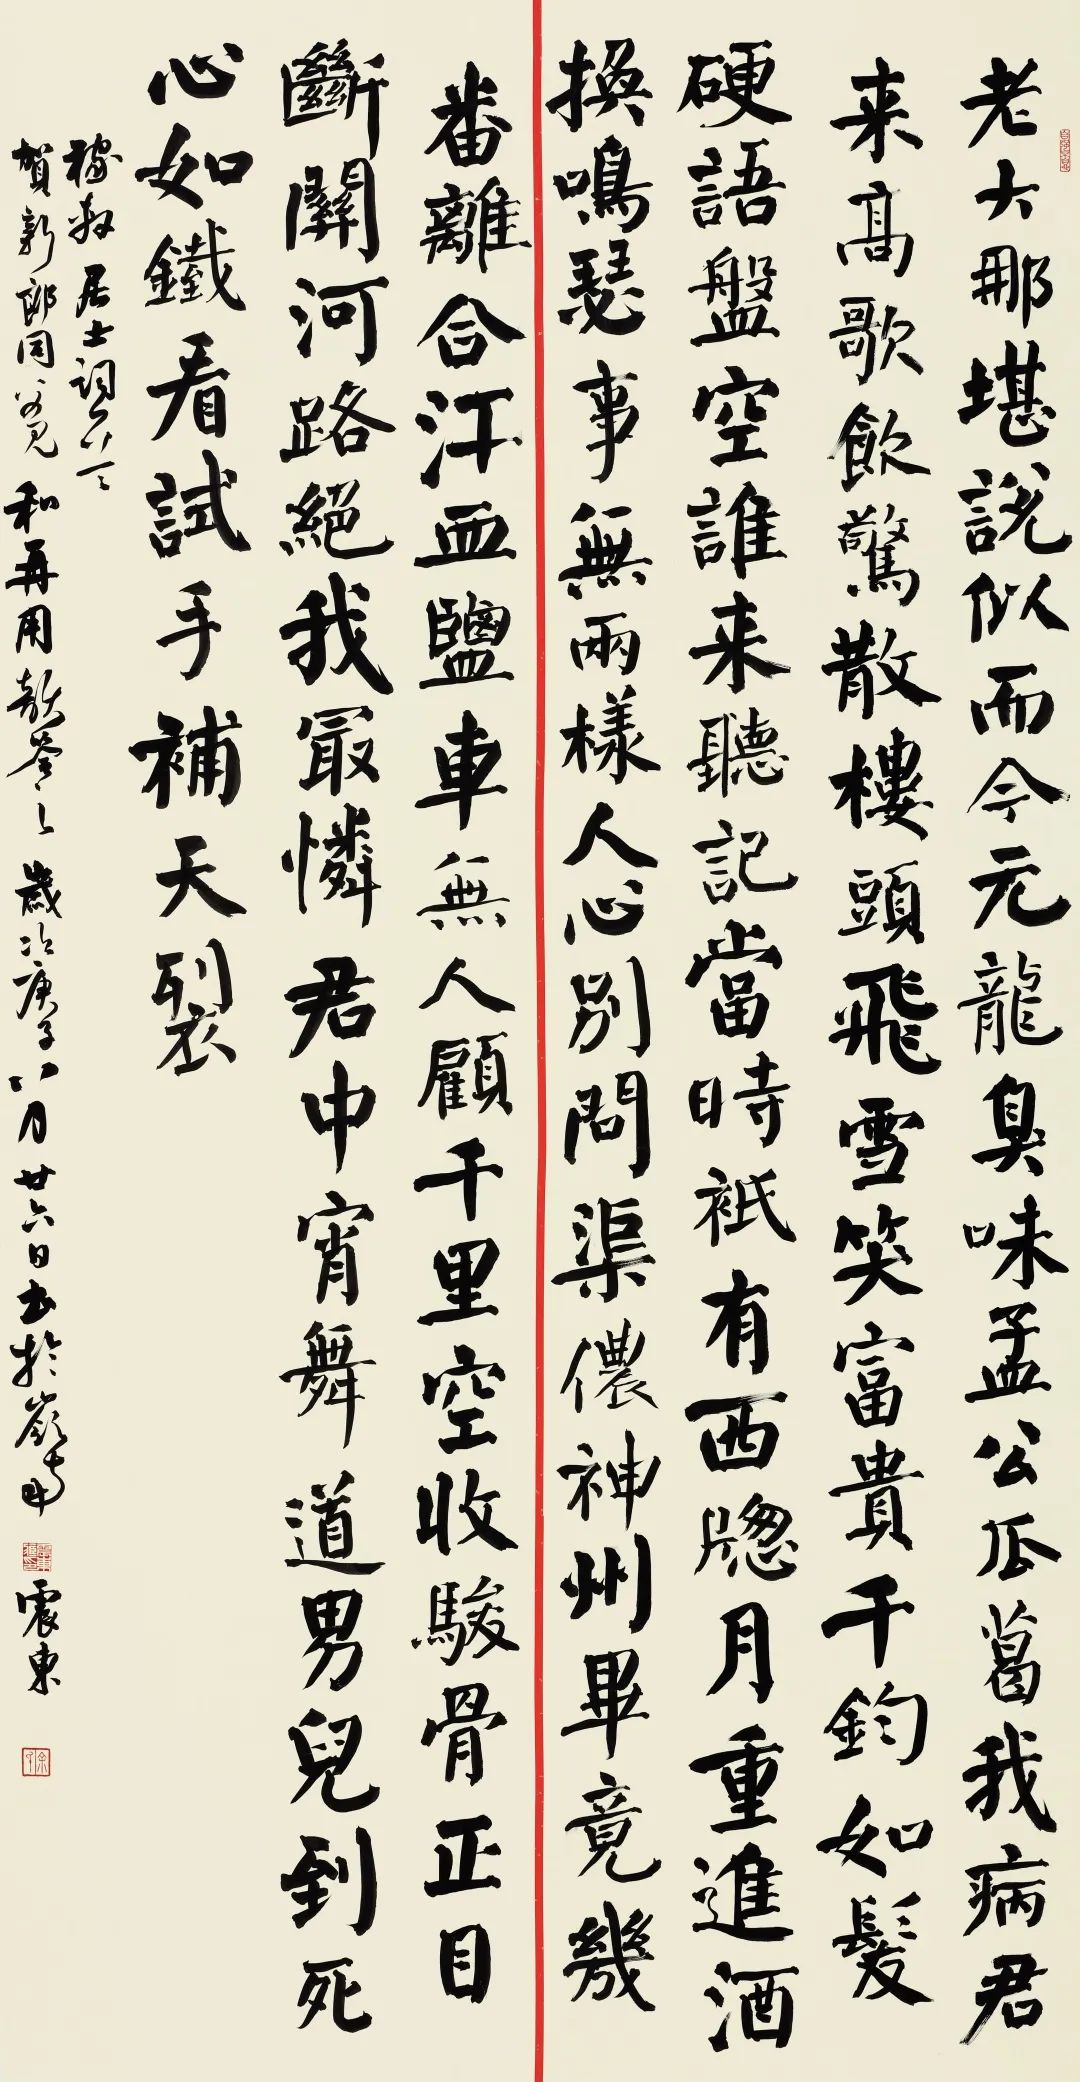 老大那堪說似而今元龍臭味孟公瓜葛我病君
来高歌飲驚散樓頭飛雪笑富貴千鈞如髮
硬語盤空誰来聽記當時衹有西牕月重進酒
換鳴瑟事無兩樣人心別問渠儂神州畢竟幾
番離合汗血鹽車無人顧千里空收駿骨正目
斷關河路絕我冣憐君中宵舞道男兒到死
心如鐵看試手補天裂
稼軒居士詞
賀新郎同父見和再用韻答之歲次庚子八月廿六日書於嶺南震東